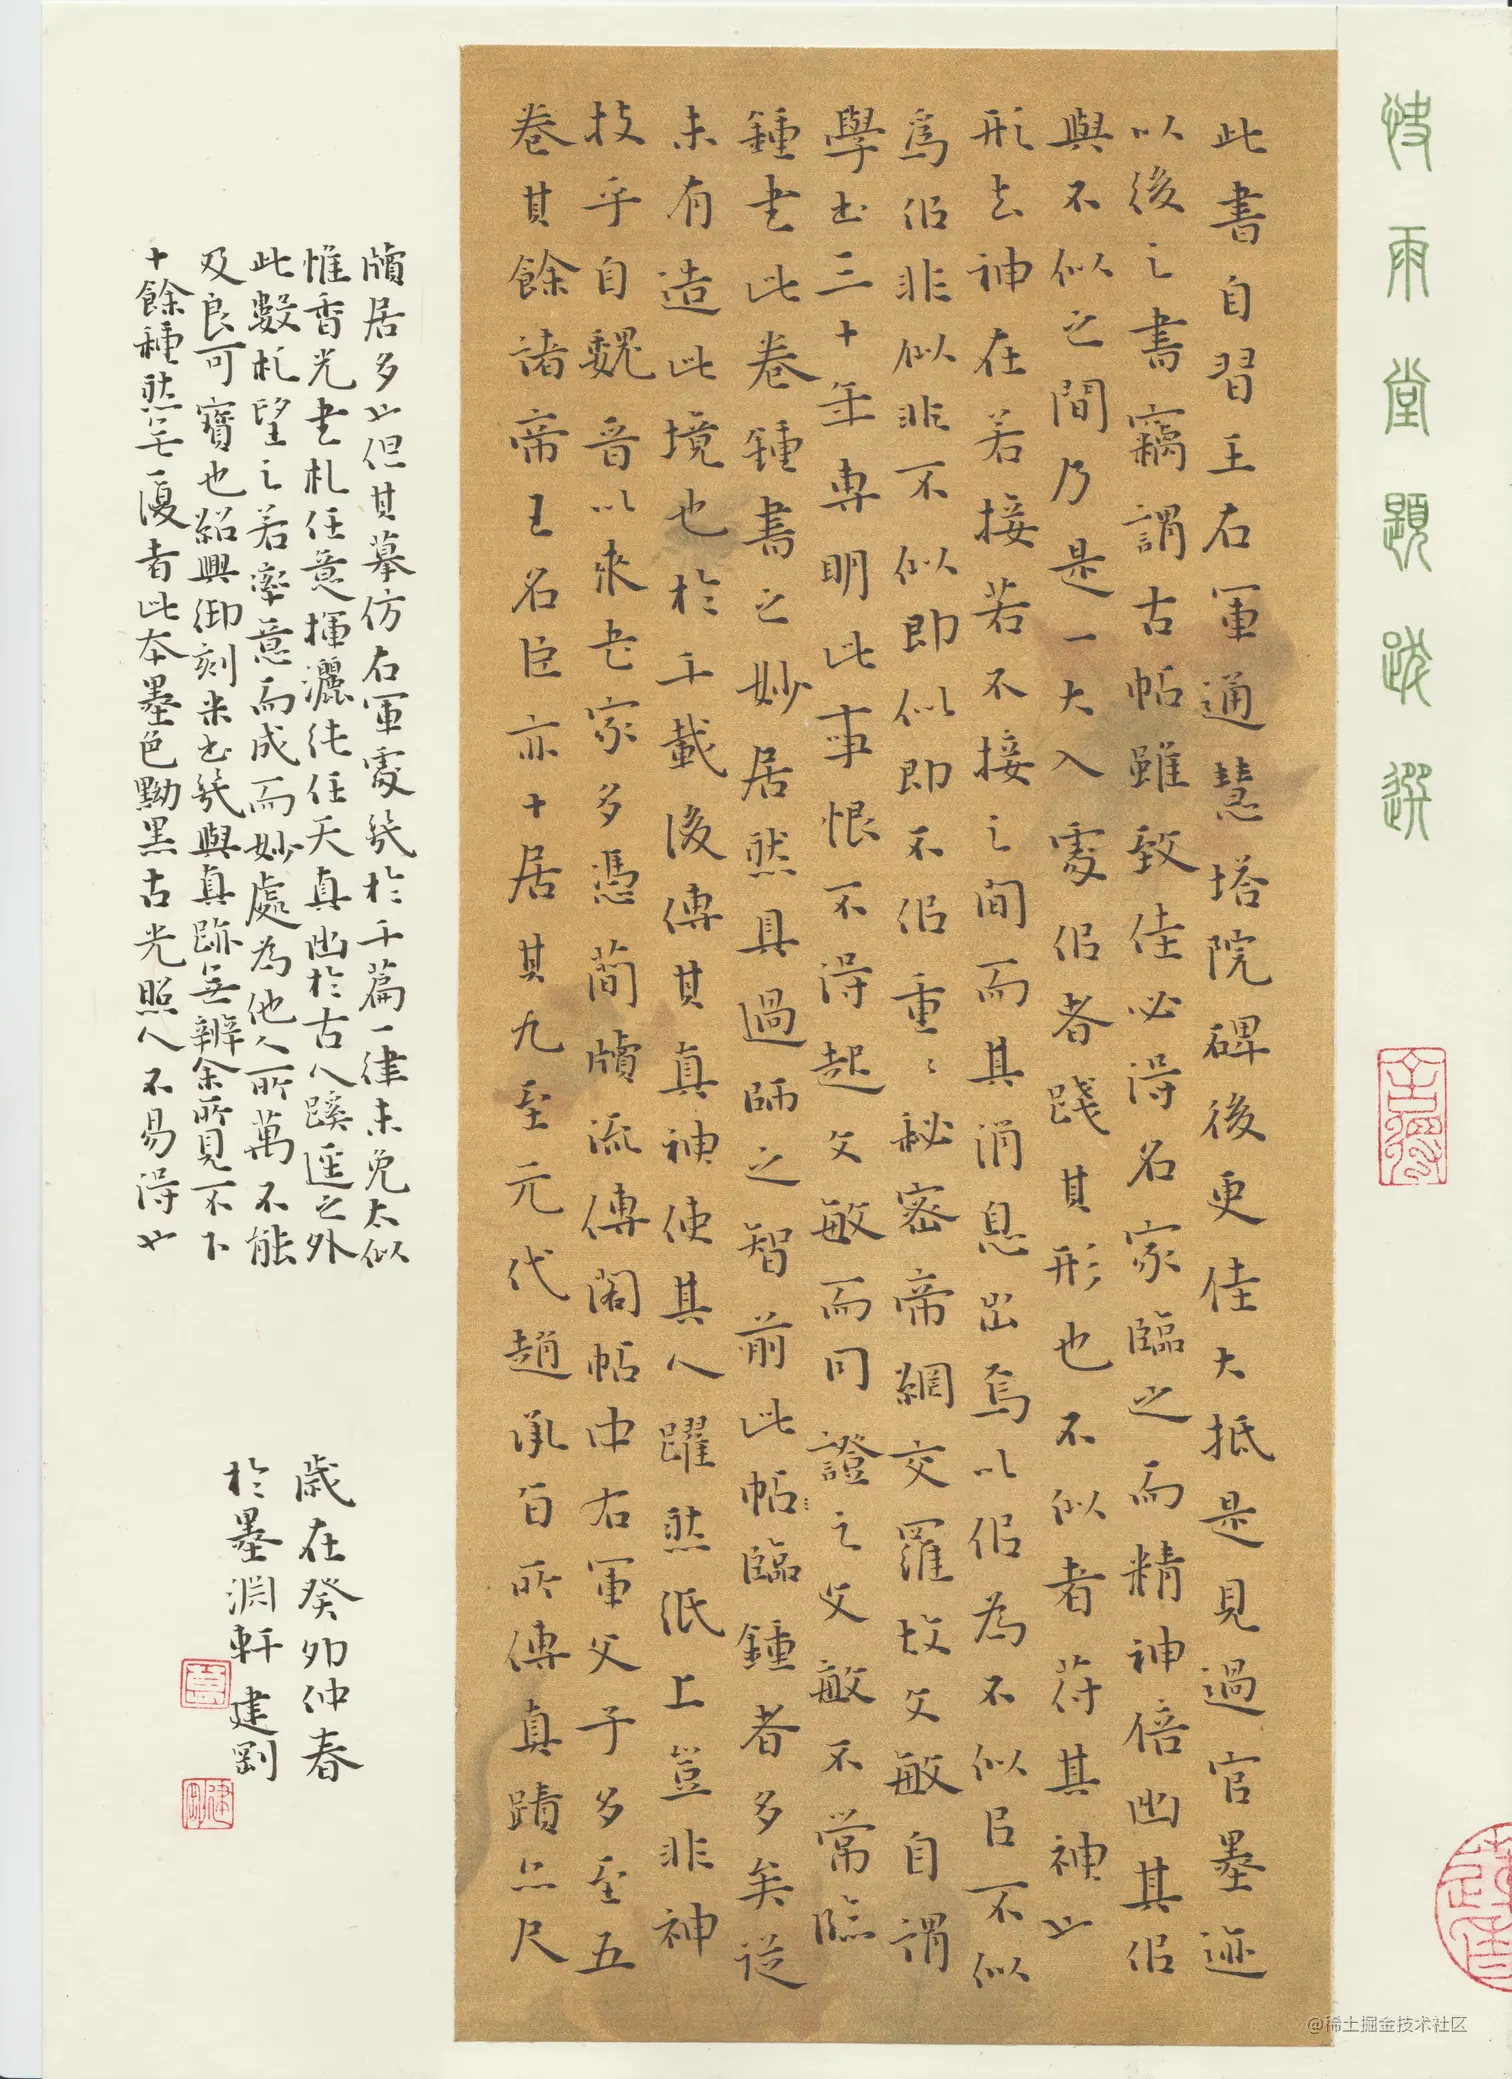 快雨堂題跋選
此書自習王右軍通慧塔院碑後更佳大抵是見過官墨迹
以後之書竊謂古帖雖致佳必得名家臨之而精神倍出其佀
與不似之間乃是一大入處佀者踐其形也不似者苻其神也
形去神在若接若不接之間而其消息出焉以佀為不似臣不似
爲佀非似非不似即似即不佀重〻秘密帝網交羅故文敏自謂
學書三十年專明此事恨不得起文敏而同證之文敏不常臨
鍾書此卷鍾書之妙居然具過師之智前此帖臨鍾者多矣從
未有造此境也於千載後傳其真神使其人躍然紙上豈非神
技乎自魏晉以來書家多憑蕳牘流傳閣帖中右軍父子多至五
卷其餘諸帝王名臣亦十居其九至元代趙承旨所傳真蹟亦尺
牘居多也但其摹仿右軍處幾於千篇一律未免太似
惟香光書札任意揮灑純任天真出於古人蹊逕之外
此數札望之若率意而成而妙處為他人所萬不能
及良可寶也紹興御刻米書幾與真跡無辨余所見不下
十餘種然無一復者此本墨色黝黑古光照人不易得也
歲在癸卯仲春
於墨淵軒建剛
建剛
@稀土掘金技术社区